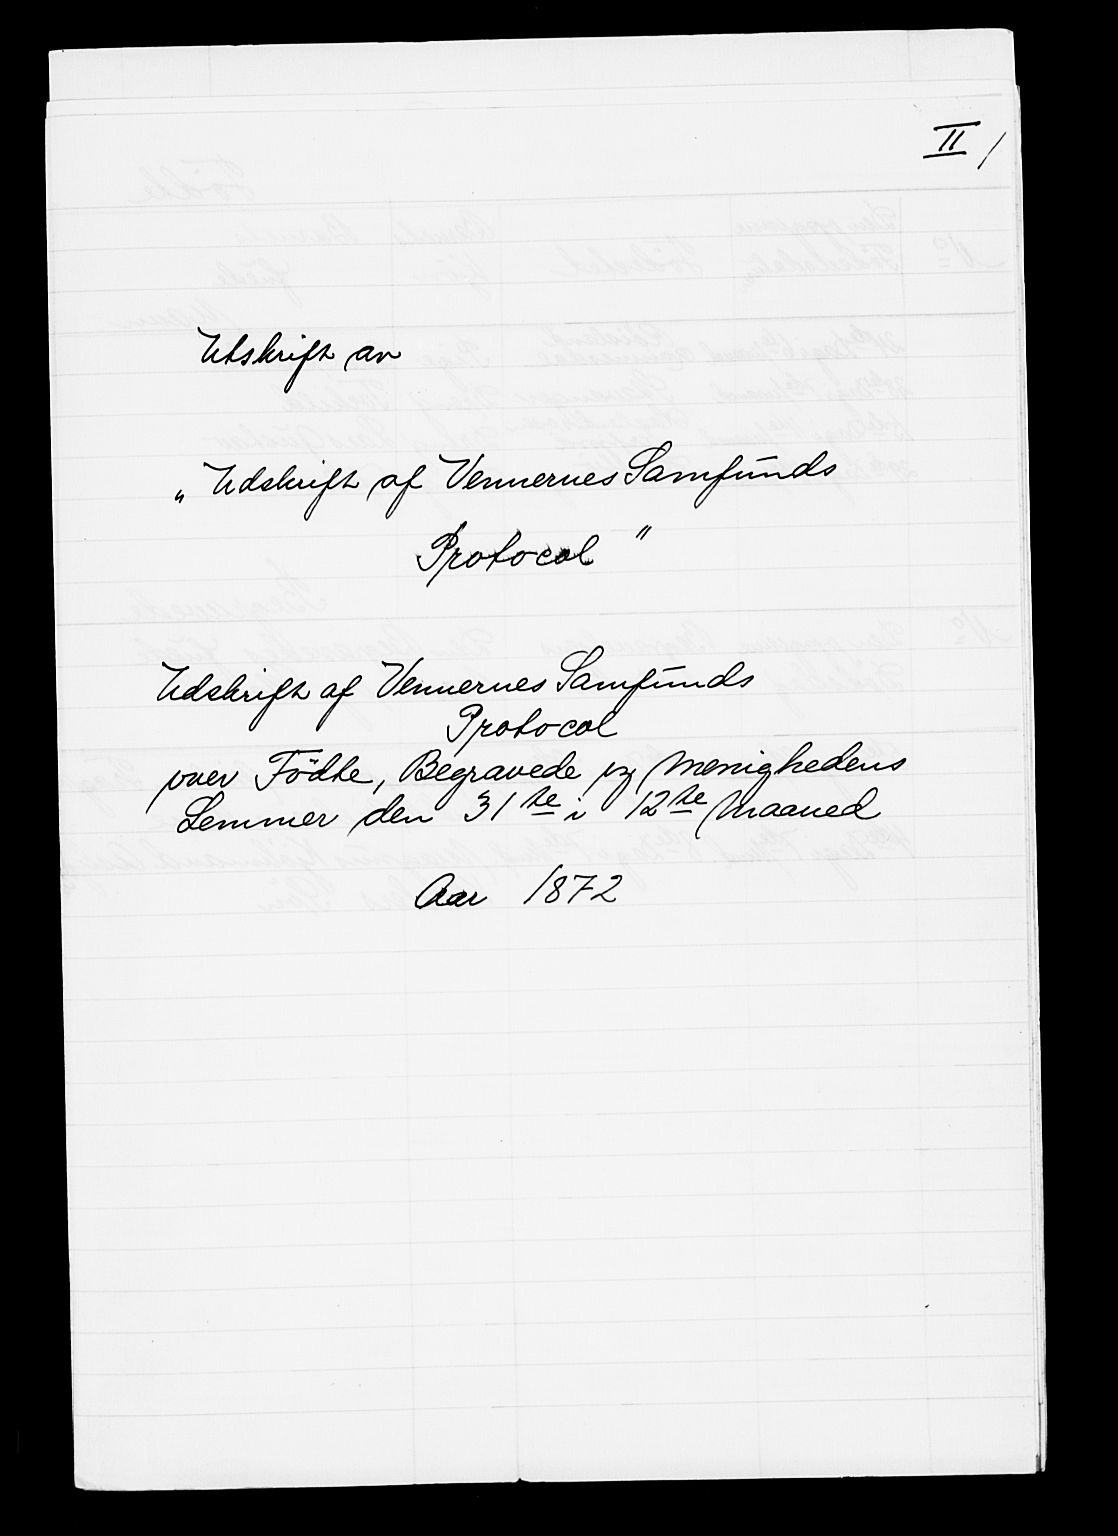 II /
Utskrift av
„ Udskrift af Vennernes Samfunds
Protocol "
Udskrift af Vennernes Samfunds
Protocol
over Födte, Begravede og Menighedens
Lemmer den 31te i 12te Maaned
Aar 1872